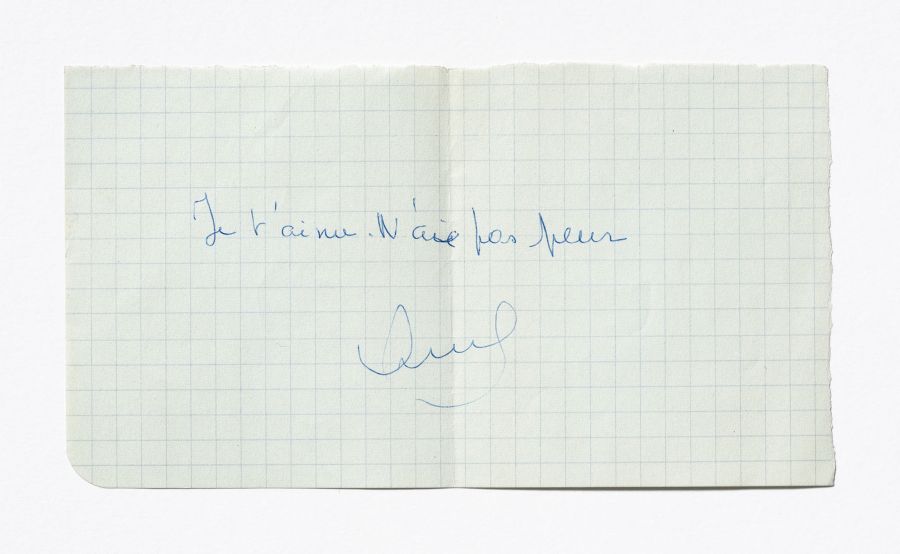 Je t'aime. N'aie pas peur